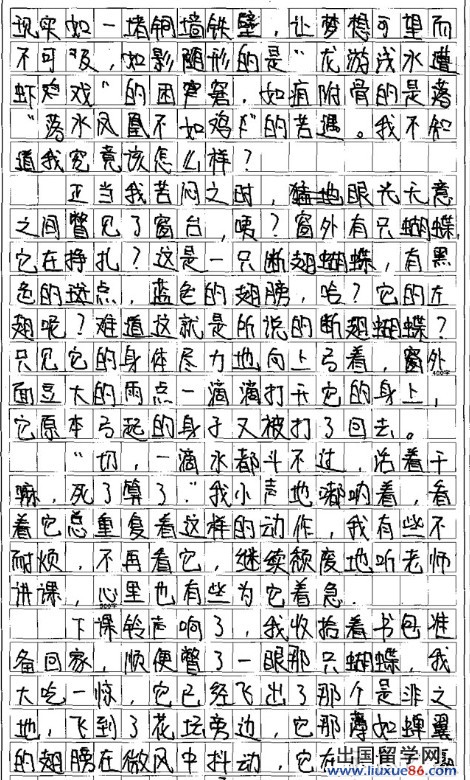 现实如一堵铜墙铁壁，让梦想可望而
不可及，如影随形的是“龙游浅水遭
虾鸡戏”的困窘，如疽附骨的是落
“落水凤凰不如鸡”的苦遇。我不知
道我究竟该怎么样？
正当我苦闷之时，猛地眼光无意
之间瞥见了窗台，咦？窗外有只蝴蝶，
它在挣扎？这是一只断翅蝴蝶，有黑
色的斑点，蓝色的翅膀，哈？它的左
翅呢？难道这就是所说的断翅蝴蝶？
只见它的身体尽力地向上弓着，窗外
400字
面豆大的雨点一滴滴打于它的身上，
它原本弓起的身子又被打了回去。
“切，一滴水都斗不过，活着干
嘛，死了算了。”我小声地嘟呐着，看
着它总重复着这样的动作，我有些不
耐烦，不再看它，继续颓废地听老师
讲课，心里也有些为它着急。
下课铃声响了，我收拾着书包准
备回家，顺便瞥了一眼那只蝴蝶，我
大吃一惊，它已经飞出了那个是非之
地，飞到了花坛旁边，它那薄如蝉翼
的翅膀在微风中抖动，它在
出国留学网
www.liuxue86.com